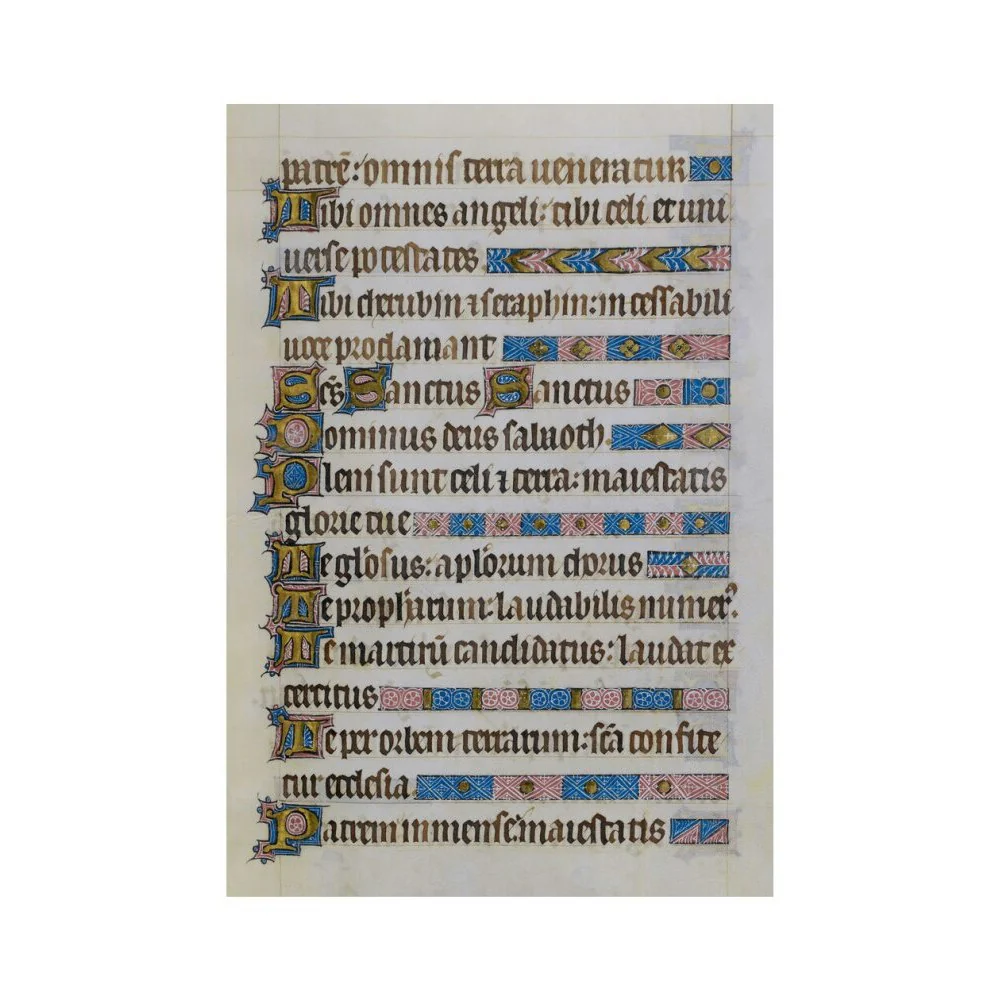 patrē: omnis terra ueneratur
Tibi omnes angeli: tibi celi et uni
uerse potestates
Tibi cherubin ⁊ seraphin: incessabili
uoce proclamant
Scs̄ Sanctus Sanctus
Dominus deus sabaoth.
Pleni sunt celi ⁊ terra: maiestatis
glorie tue
Te gl̄osus: apl̄orum chorus
Te proph̄arum: laudabilis numer᷒.
Te martirū candidatus: laudat ex
ercitus
Te per orbem terrarum: sc̄a confite
tur ecclesia
Patrem inmense: maiestatis